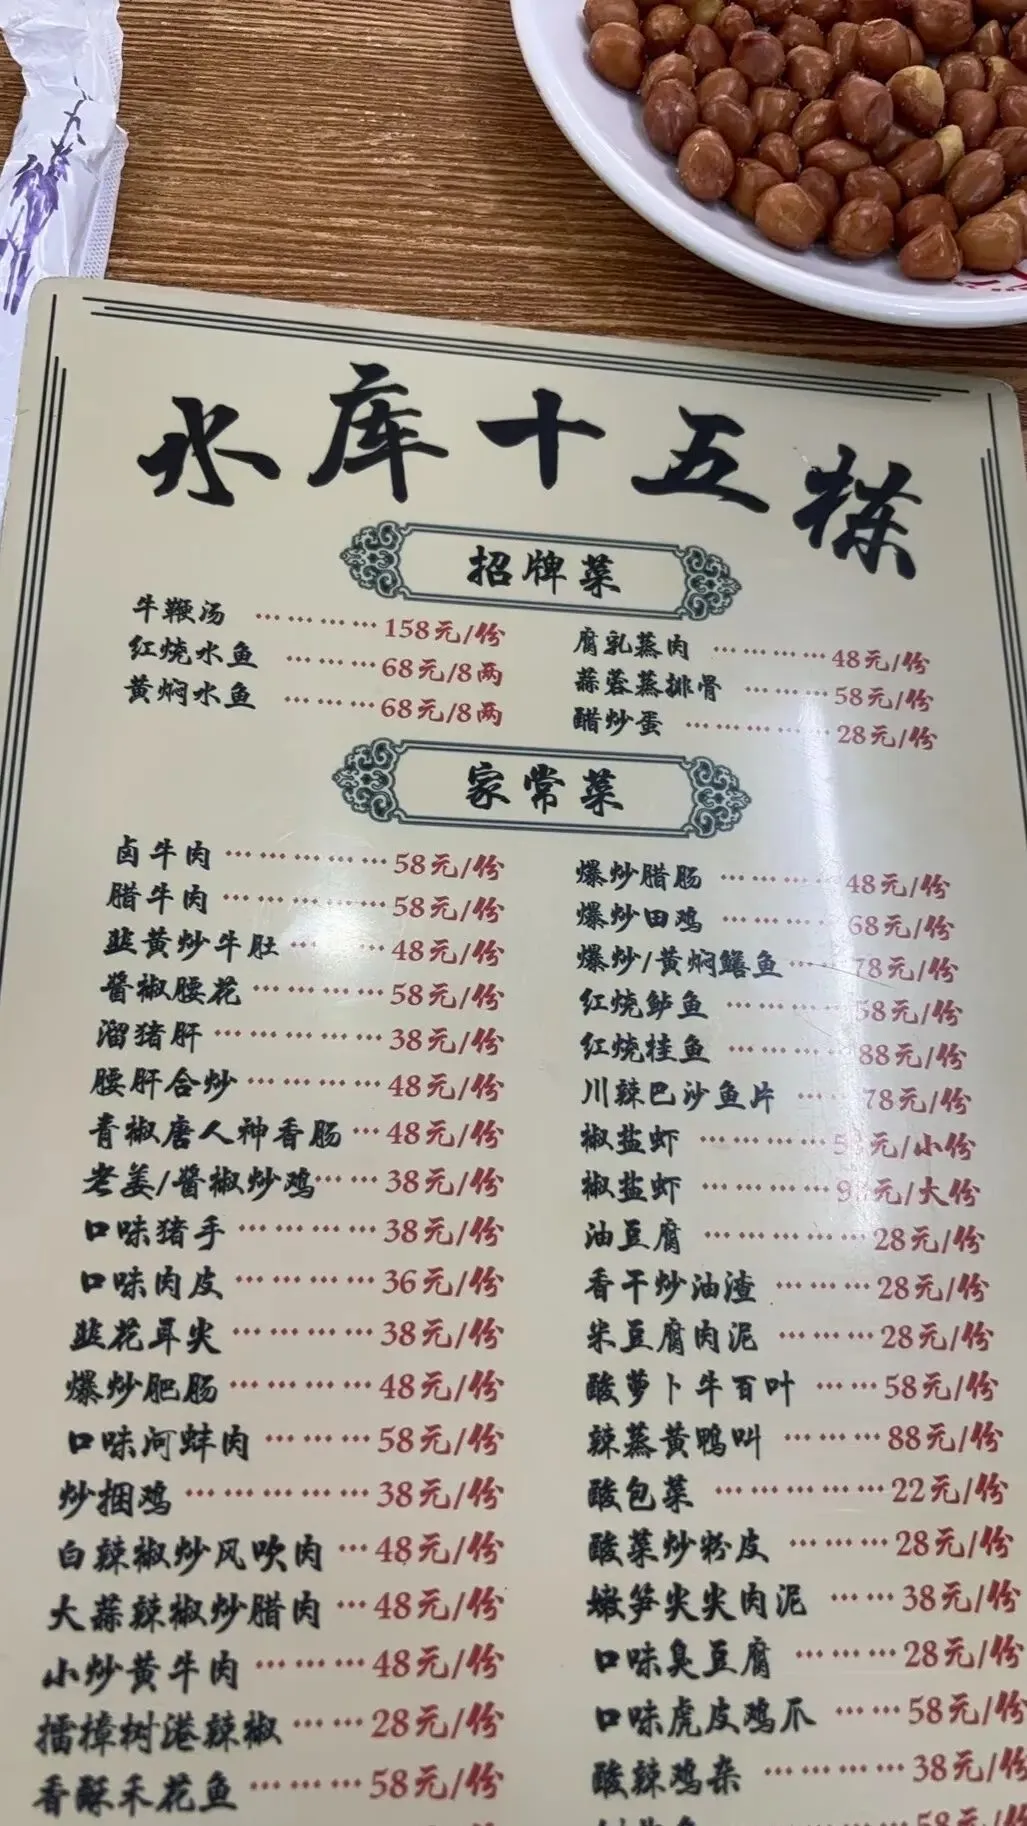 水库十五栋
招牌菜
牛鞭汤 ………… 158元/份
红烧水鱼 ……… 68元/8两
黄焖水鱼 ……… 68元/8两
腐乳蒸肉 ………… 48元/份
蒜蓉蒸排骨 ……… 58元/份
醋炒蛋 …………… 28元/份
家常菜
卤牛肉 …………… 58元/份
腊牛肉 …………… 58元/份
韭黄炒牛肚 … … 48元/份
酱椒腰花 ………… 58元/份
溜猪肝 …………… 38元/份
腰肝合炒 ………… 48元/份
青椒唐人神香肠 … 48元/份
老姜/酱椒炒鸡 …… 38元/份
口味猪手 ………… 38元/份
口味肉皮 ………… 36元/份
韭花耳尖 ………… 38元/份
爆炒肥肠 ………… 48元/份
口味河蚌肉 ……… 58元/份
炒捆鸡 …………… 38元/份
白辣椒炒风吹肉 … 48元/份
大蒜辣椒炒腊肉 … 48元/份
小炒黄牛肉 ……… 48元/份
擂樟树港辣椒 …… 28元/份
香酥禾花鱼 ……… 58元/份
爆炒腊肠 ………… 48元/份
爆炒田鸡 ………… 68元/份
爆炒/黄焖鳝鱼 …… 78元/份
红烧鲈鱼 ………… 58元/份
红烧桂鱼 ………… 88元/份
川辣巴沙鱼片 …… 78元/份
椒盐虾 ………… 元/小份
椒盐虾 ………… 元/大份
油豆腐 …………… 28元/份
香干炒油渣 ……… 28元/份
米豆腐肉泥 ……… 28元/份
酸萝卜牛百叶 …… 58元/份
辣蒸黄鸭叫 ……… 88元/份
酸包菜 …………… 22元/份
酸菜炒粉皮 ……… 28元/份
嫩笋尖尖肉泥 …… 38元/份
口味臭豆腐 ……… 28元/份
口味虎皮鸡爪 …… 58元/份
酸辣鸡杂 ………… 38元/份